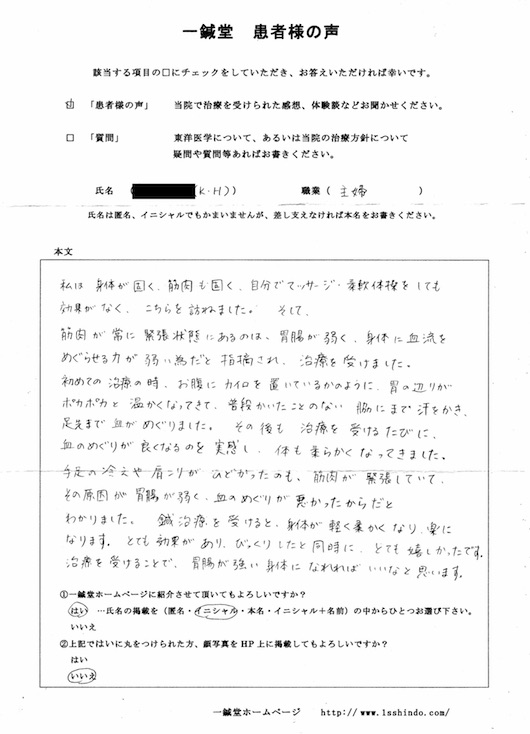 一鍼堂 患者様の声
該当する項目の□にチェックをしていただき、お答えいただければ幸いです。
☑ 「患者様の声」 当院で治療を受けられた感想、体験談などお聞かせください。
□ 「質問」 東洋医学について、あるいは当院の治療方針について
疑問や質問等あればお書きください。
氏名 ( (K・H)) 職業 ( 主婦 )
氏名は匿名、イニシャルでもかまいませんが、差し支えなければ本名をお書きください。
本文
私は 身体が固く、筋肉も固く、自分でマッサージ・柔軟体操をしても
効果がなく、こちらを訪ねました。 そして、
筋肉が常に緊張状態にあるのは、胃腸が弱く、身体に血流を
めぐらせる力が弱い為だと指摘され、治療を受けました。
初めての治療の時、お腹にカイロを置いているかのように、胃の辺りが
ポカポカと温かくなってきて、普段かいたことのない 脇にまで汗をかき、
足先まで血がめぐりました。 その後も 治療を受けるたびに、
血のめぐりが良くなるのを実感し、体も柔らかくなってきました。
手足の冷えや肩こりがひどかったのも、筋肉が緊張していて、
その原因が胃腸が弱く、血のめぐりが悪かったからだと
わかりました。 鍼治療を受けると、身体が軽く柔かくなり、楽に
なります。とても効果があり、びっくりしたと同時に、とても嬉しかったです。
治療を受けることで、胃腸が強い身体になれればいいなと思います。
①一鍼堂ホームページに紹介させて頂いてもよろしいですか？
はい …氏名の掲載を（匿名・イニシャル・本名・イニシャル＋名前）の中からひとつお選び下さい。
いいえ
②上記ではいに丸をつけられた方、顔写真をHP上に掲載してもよろしいですか？
はい
いいえ
一鍼堂ホームページ http://www.1sshindo.com/